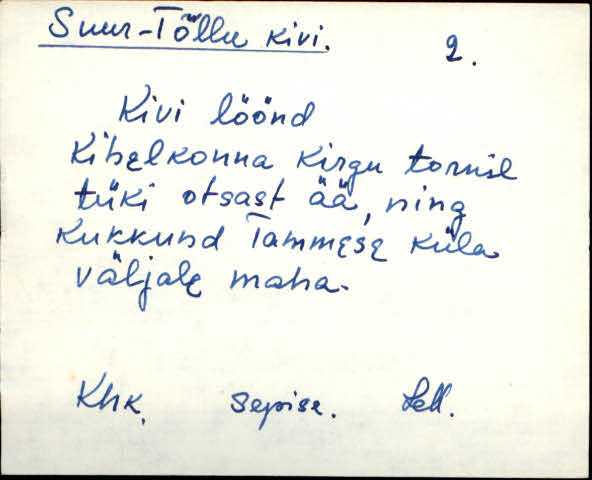 Suur-Tõllu kivi.
2.
Kivi löönd
Kihelkonna kirgu tornil
tüki otsast ää, ning
kukkund Tammese küla
väljale maha.
Khk. Sepise.